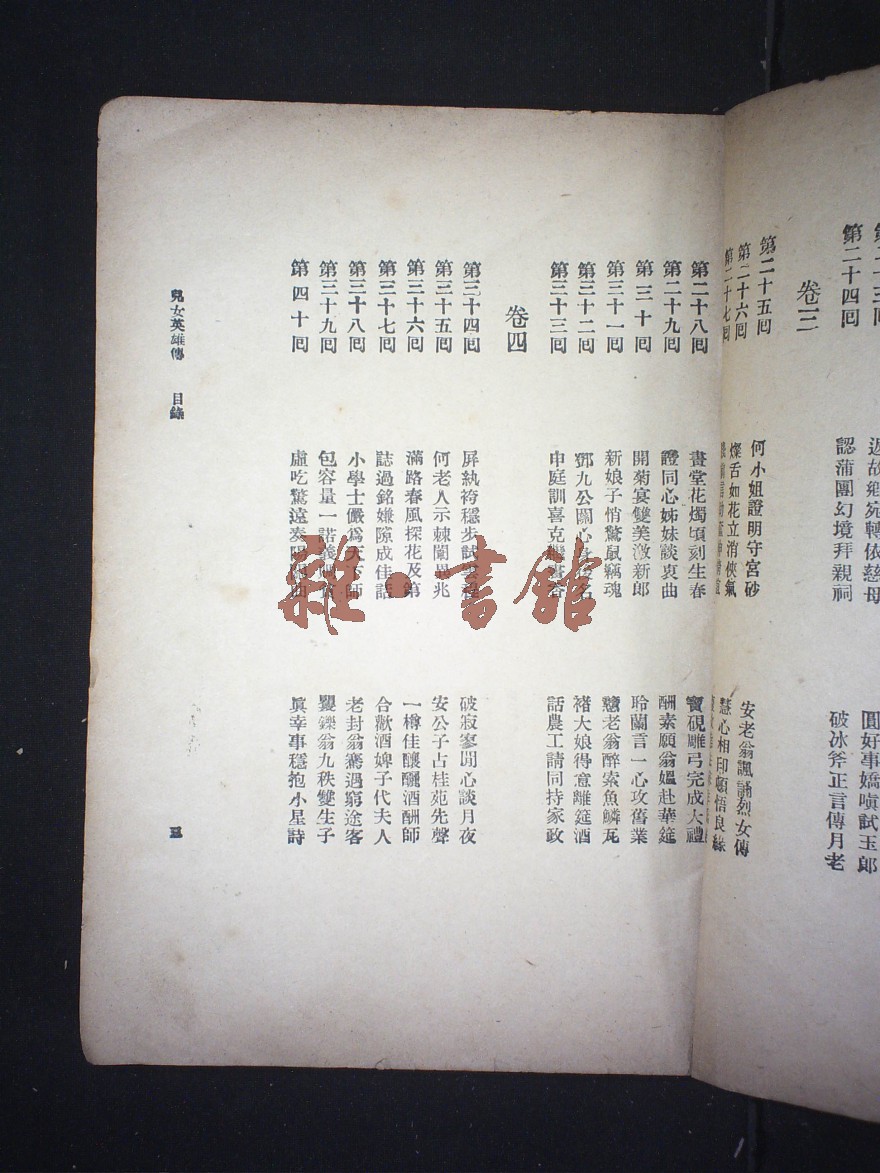 第二十四回 認蒲團幻境拜親祠 破冰斧正言傳月老
卷三
第二十五回 何小姐證明守宮砂 安老翁諷誦烈女傳
第二十六回 燦舌如花立消俠氣 慧心相印頓悟良緣
第二十七回
第二十八回 畫堂花燭頃刻生春 寶硯雕弓完成大禮
第二十九回 證同心姊妹談衷曲 酬素願翁媼赴華筵
第三十回 開菊宴雙美激新郎 聆蘭言一心攻舊業
第三十一回 新娘子悄驚鼠竊魂 戇老翁醉索魚鱗瓦
第三十二回 鄧九公關心身後名 褚大娘得意離筵酒
第三十三回 申庭訓喜克繩書香 話農工請同持家政
卷四
第三十四回 屏紈袴穩步試雲程 破寂寥閒心談月夜
第三十五回 何老人示棘闈異兆 安公子占桂苑先聲
第三十六回 滿路春風探花及第 一樽佳釀釃酒酬師
第三十七回 誌過銘嫌隙成佳話 合歡酒婢子代夫人
第三十八回 小學士儼爲天下師 老封翁驀遇窮途客
第三十九回 包容量一諾義 矍鑠翁九秩雙生子
第四十回 虛吃驚遠奏陽關曲 眞幸事穩抱小星詩
兒女英雄傳 目錄 三
雜·書館